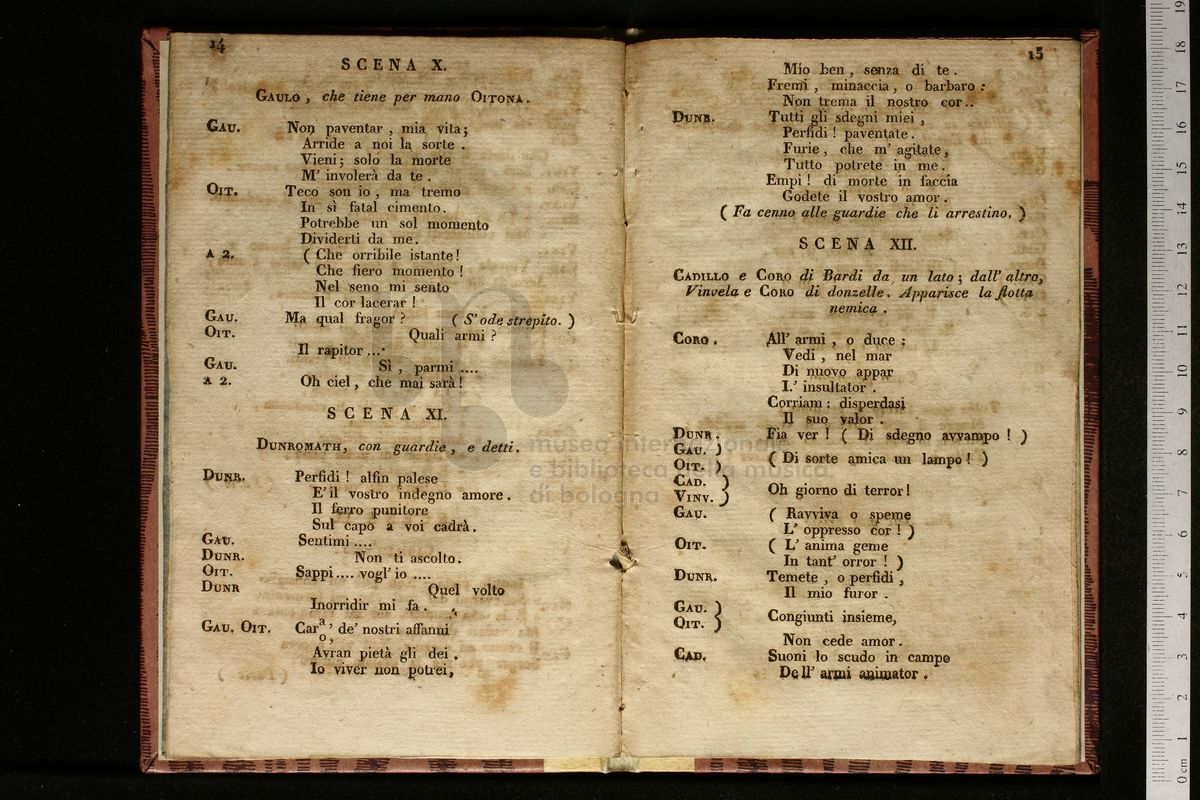 14
SCENA X.
GAULO, che tiene per mano OITONA.
GAU. Non paventar, mia vita;
Arride a noi la sorte.
Vieni; solo la morte
M' involerà da te.
OIT. Teco son io, ma tremo
In sì fatal cimento.
Potrebbe un sol momento
Dividerti da me.
A 2. ( Che orribile istante!
Che fiero momento!
Nel seno mi sento
Il cor lacerar!
GAU. Ma qual fragor? ( S' ode strepito. )
OIT. Quali armi?
Il rapitor ...
GAU. Sì, parmi ....
A 2. Oh ciel, che mai sarà!
SCENA XI.
DUNROMATH, con guardie, e detti.
DUNR. Perfidi! alfin palese
E' il vostro indegno amore.
Il ferro punitore
Sul capo a voi cadrà.
GAU. Sentimi ....
DUNR. Non ti ascolto.
OIT. Sappi .... vogl' io ....
DUNR Quel volto
Inorridir mi fa.
GAU. OIT. Car a/o, de' nostri affanni
Avran pietà gli dei.
Io viver non potrei,
15
Mio ben, senza di te.
Fremi, minaccia, o barbaro:
Non trema il nostro cor..
DUNR. Tutti gli sdegni miei,
Perfidi! paventate.
Furie, che m' agitate,
Tutto potrete in me.
Empi! di morte in faccia
Godete il vostro amor.
( Fa cenno alle guardie che li arrestino. )
SCENA XII.
CADILLO e CORO di Bardi da un lato; dall' altro,
Vinvela e CORO di donzelle. Apparisce la flotta
nemica.
CORO. All' armi, o duce:
Vedi, nel mar
Di nuovo appar
L' insultator.
Corriam: disperdasi
Il suo valor.
DUNR. Fia ver! ( Di sdegno avvampo! )
GAU. )
OIT. ) ( Di sorte amica un lampo! )
CAD. )
VINV. ) Oh giorno di terror!
GAU. ( Ravviva o speme
L' oppresso cor! )
OIT. ( L' anima geme
In tant' orror! )
DUNR. Temete, o perfidi,
Il mio furor.
GAU. )
OIT. ) Congiunti insieme,
Non cede amor.
CAD. Suoni lo scudo in campo
Dell' armi animator.
museo internazionale
e biblioteca della musica
di bologna
0 cm 1 2 3 4 5 6 7 8 9 10 11 12 13 14 15 16 17 18 19